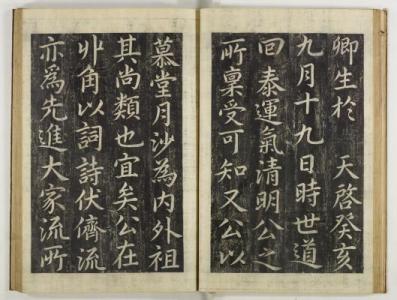 卿生於　天啓癸亥
九月十九日時世道
回泰運氣清明公之
所稟受可知又公以
慕堂月沙為内外祖
其尚類也宜矣公在
丱角以詞詩伏儕流
亦為先進大家流所